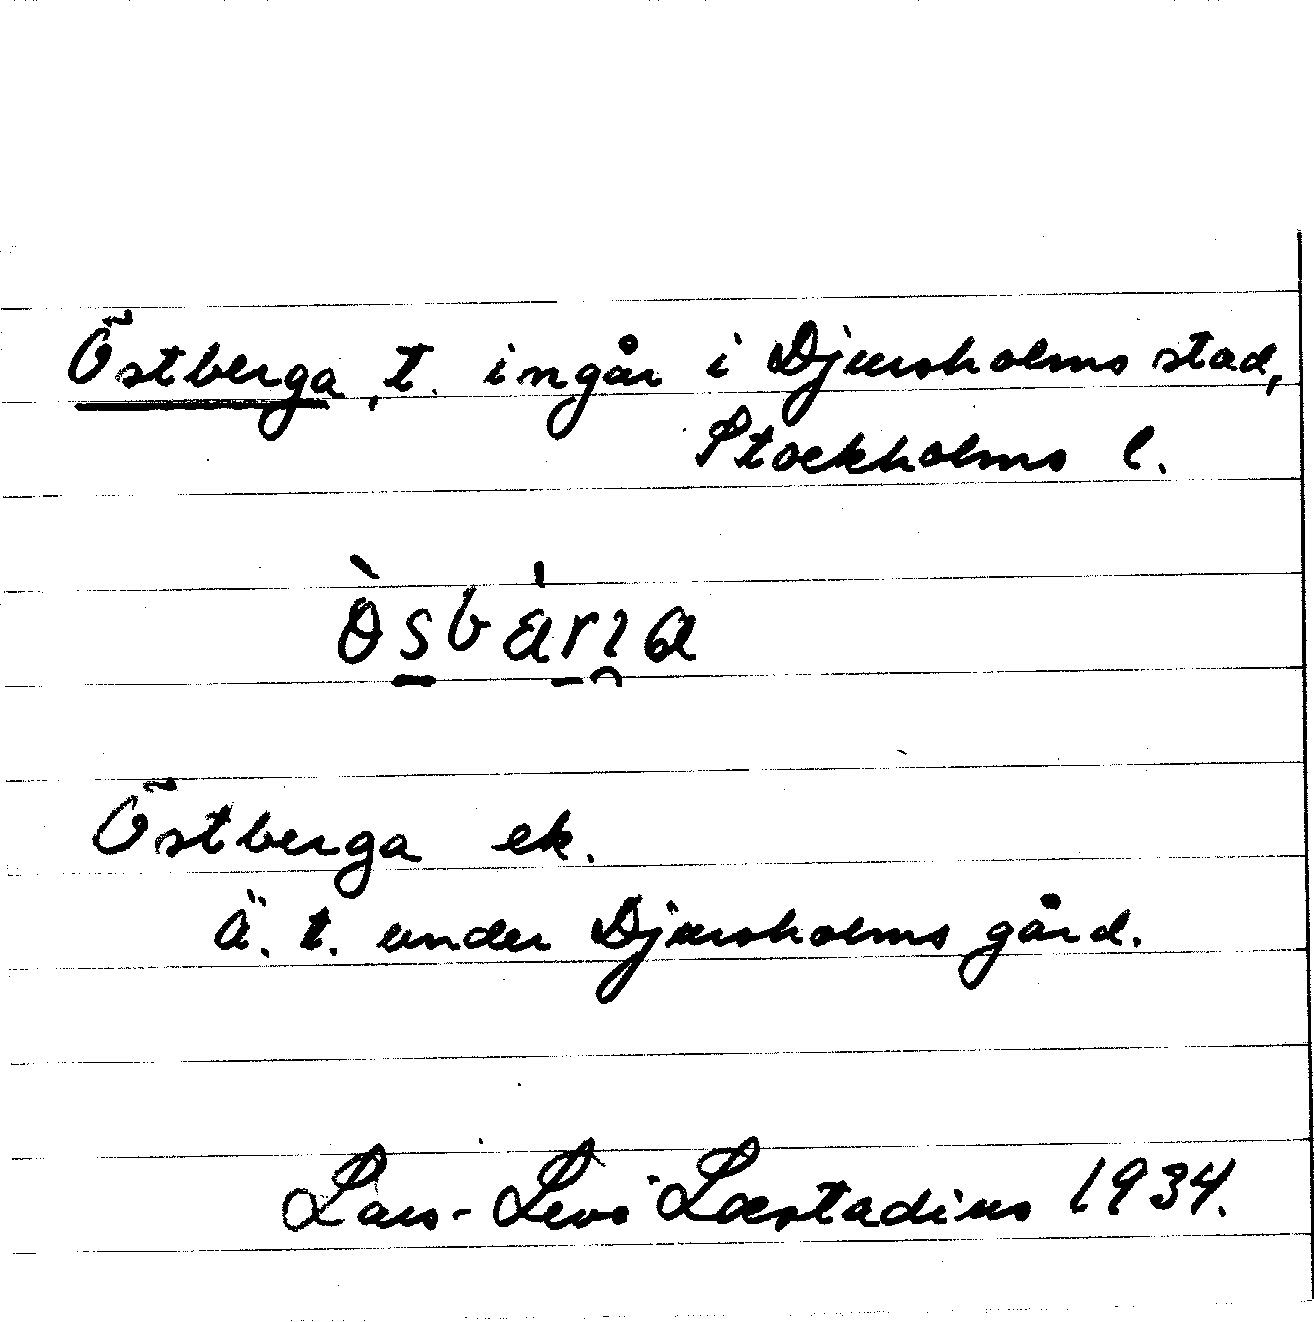 Östberga, t. ingår i Djursholms stad,
Stockholms l.
Östberga ek.
Ä. t. under Djursholms gård.
Lars-Levi Læstadius 1934.